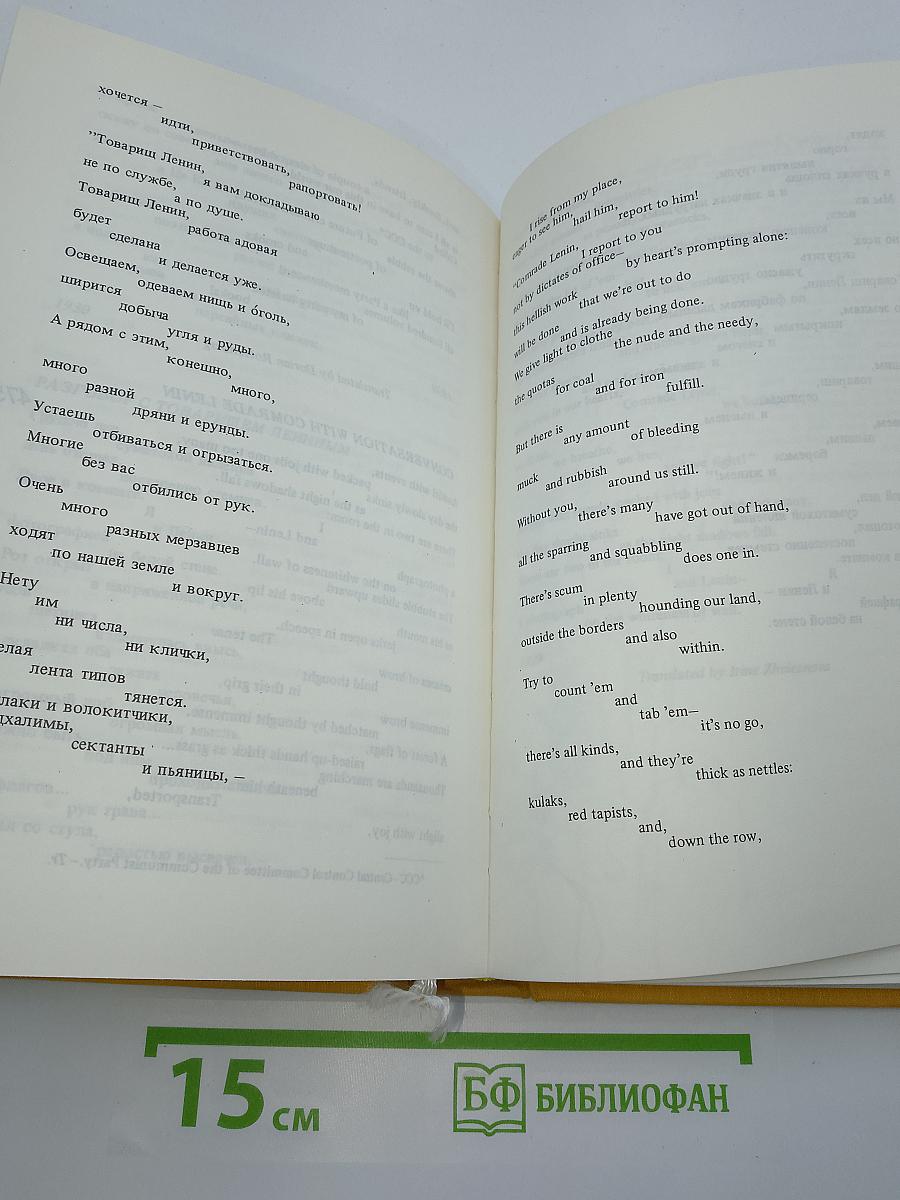 хочется —
идти,
приветствовать,
рапортовать!
"Товарищ Ленин,
я вам докладываю
не по службе,
а по душе.
Товарищ Ленин,
работа адовая
будет
сделана
и делается уже.
Освещаем,
одеваем нищь и о́голь,
ширится
добыча
угля и руды.
А рядом с этим,
конешно,
много,
много
разной
дряни и ерунды.
Устаешь
отбиваться и огрызаться.
Многие
без вас
отбились от рук.
Очень
много
разных мерзавцев
ходят
по нашей земле
и вокруг.
Нету
им
ни числа,
ни клички,
елая
лента типов
тянется.
лаки и волокитчики,
дхалимы,
сектанты
и пьяницы, —
I rise from my place,
eager to see him,
hail him,
report to him!
"Comrade Lenin,
I report to you
not by dictates of office—
by heart's prompting alone:
this hellish work
that we're out to do
will be done
and is already being done.
We give light to clothe
the nude and the needy,
the quotas
for coal
and for iron
fulfill.
But there is
any amount
of bleeding
muck
and rubbish
around us still.
Without you,
there's many
have got out of hand,
all the sparring
and squabbling
does one in.
There's scum
in plenty
hounding our land,
outside the borders
and also
within.
Try to
count 'em
and
tab 'em—
it's no go,
there's all kinds,
and they're
thick as nettles:
kulaks,
red tapists,
and,
down the row,
15 см
БФ БИБЛИОФАН